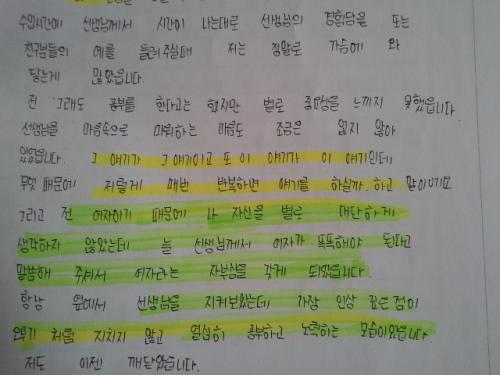 수업시간에 선생님께서 시간이 나는대로 선생님의 경험담을 또는
친구분들의 예를 들려주실때 저는 정말로 가슴에 와
닿는게 많았읍니다.
전 그래도 공부를 한다고는 했지만 별로 중요성을 느끼지 못했읍니다.
선생님을 마음속으로 마워하는 마음도 조금은 없지 않아
있었읍니다. 그 얘기가 그 얘기이고 또 이 얘기가 이 얘기인데
무엇 때문에 저렇게 매번 반복하면 얘기를 하실까. 하고 말이예요
그리고 전 여자이기 때문에 나 자신을 별로 대단하게
생각하지 않았는데 늘 선생님께서 여자가 똑똑해야 된다고
말씀해 주셔서 여자라는 자부심을 갖게 되었읍니다.
항상 옆에서 선생님을 지켜보았는데 가장 인상 깊은 점이
처럼 지치지 않고 열심히 공부하고 노력하는 모습이었읍니다.
저도 이젠 깨달았읍니다.